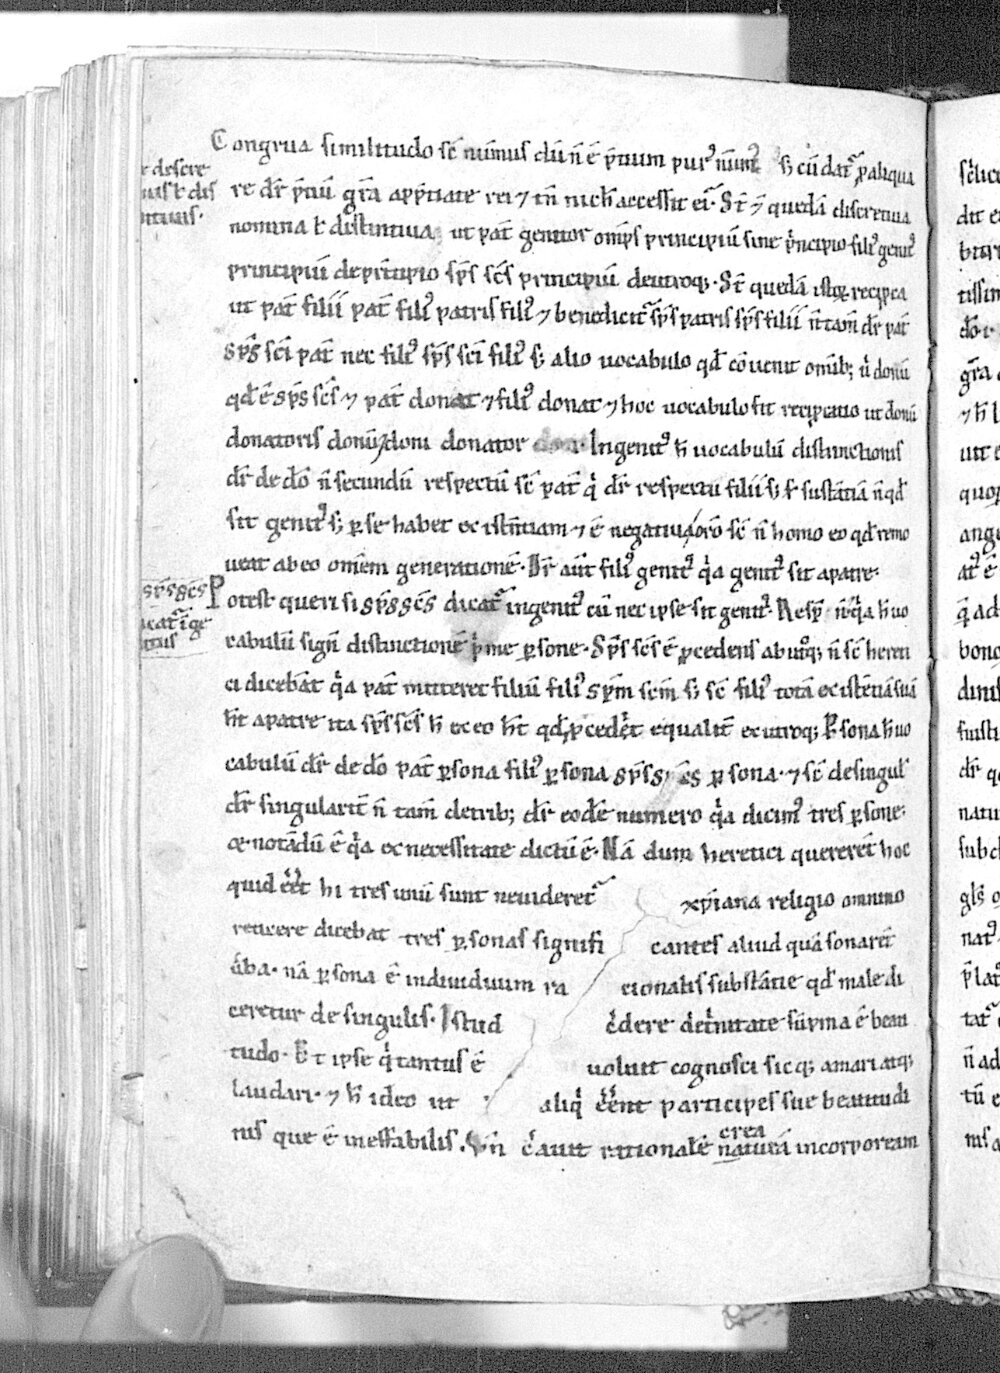 r descre
uis ł dis
ntiuis·
Congrua similitudo sc̄ nūmus dū n̄ ē p̄tium purꝰ nūmꝰ sꝫ cū dat᷑ ꝓ aliqua
re dr̄ p̄tiū gr̄a app̄tiate rei ⁊ tn̄ nichł accessit ei· St̄ ⁊ quedā discretiua
nomina ł distinctiua ut pat̄ genitor om̄ps principiū sine p̄ncipio filiꝰ genitꝰ
principiū de p̄ncipio sp̄s sc̄s principiū de utroqꝫ· St̄ quedā istoꝝ recip̱ca
ut pat̄ filii pat̄ filiꝰ patris filiꝰ ⁊ benedicit᷑ sp̄s patris sp̄s filii n̄ tam̄ dr̄ pat̄
sp̄s sc̄i pat̄ nec filiꝰ sp̄s sc̄i filiꝰ sꝫ alio uocabulo qd̄ cōuenit omībꝫ ut donū
qd̄ ē sp̄s sc̄s ⁊ pat̄ donat ⁊ filiꝰ donat ⁊ hoc uocabulo fit recip̱catio ut donū
donatoris donū ⁊ doni donator Ingenitꝰ h̄ uocabulū distinctionis
dr̄ de dō n̄ secundū respectū sc̄ pat̄ q̇ dr̄ respectu filii sꝫ s substātiā n̄ qd̄
sit genitꝰ sꝫ ꝑ se habet existn̄tiam ⁊ ē negatiua oro sc̄ n̄ homo eo qd̄ remo
ueat ab eo om̄em generationē· Dr̄ aūt filiꝰ genitꝰ q̇a genitꝰ sit a patre·
sp̄s sc̄s
icat᷑ īge
itus
Potest queri si sp̄s sc̄s dicat᷑ ingenitꝰ cū nec ipse sit genitꝰ· Resp̄ n̄ q̇a h̄ uo
cabulū sign̄ distinctionē ṗme ꝑsone· Sp̄s sc̄s ē ꝓcedens ab utꝰqꝫ n̄ sc̄ hereti
ci dicebāt q̇a pat̄ mitteret filiū filiꝰ sp̄m sc̄m sꝫ sc̄ filiꝰ totā existētiā suā
h̄t a patre ita sp̄s sc̄s h̄ ex eo h̄t qd̄ ꝓcedit equalit̄ ex utroqꝫ Ꝑsona h̄ uo
cabulū dr̄ de dō pat̄ ꝑsona filiꝰ ꝑsona sp̄s sc̄s ꝑsona· ⁊ sc̄ de singul
dr̄ singularit̄ n̄ tam̄ de tribꝫ dr̄ eodē numero q̇a dicimꝰ tres ꝑsone·
qd̄ notādū ē q̇a ex necessitate dictū ē· Nā dum heretici quererēt hoc
quid eēt hi tres unū sunt ne uideret᷑ xp̄iana religio omnino
reticere dicebat tres ꝑsonas signifi cantes aliud quā sonaret
ūba· nā ꝑsona ē indiuiduum ra cionalis substātie qd̄ male di
ceretur de singulis· Istud c̄dere de t̄nitate sūma ē beati
tudo· Et ipse q̇ tantus ē uoluit cognosci sicqꝫ amari atqꝫ
laudari· ⁊ h̄ ideo ut aliq̇ eēnt participes sue beatitudi
nis que ē ineffabilis. Vn̄ c̄auit rationalē naturā incorpoream
crea